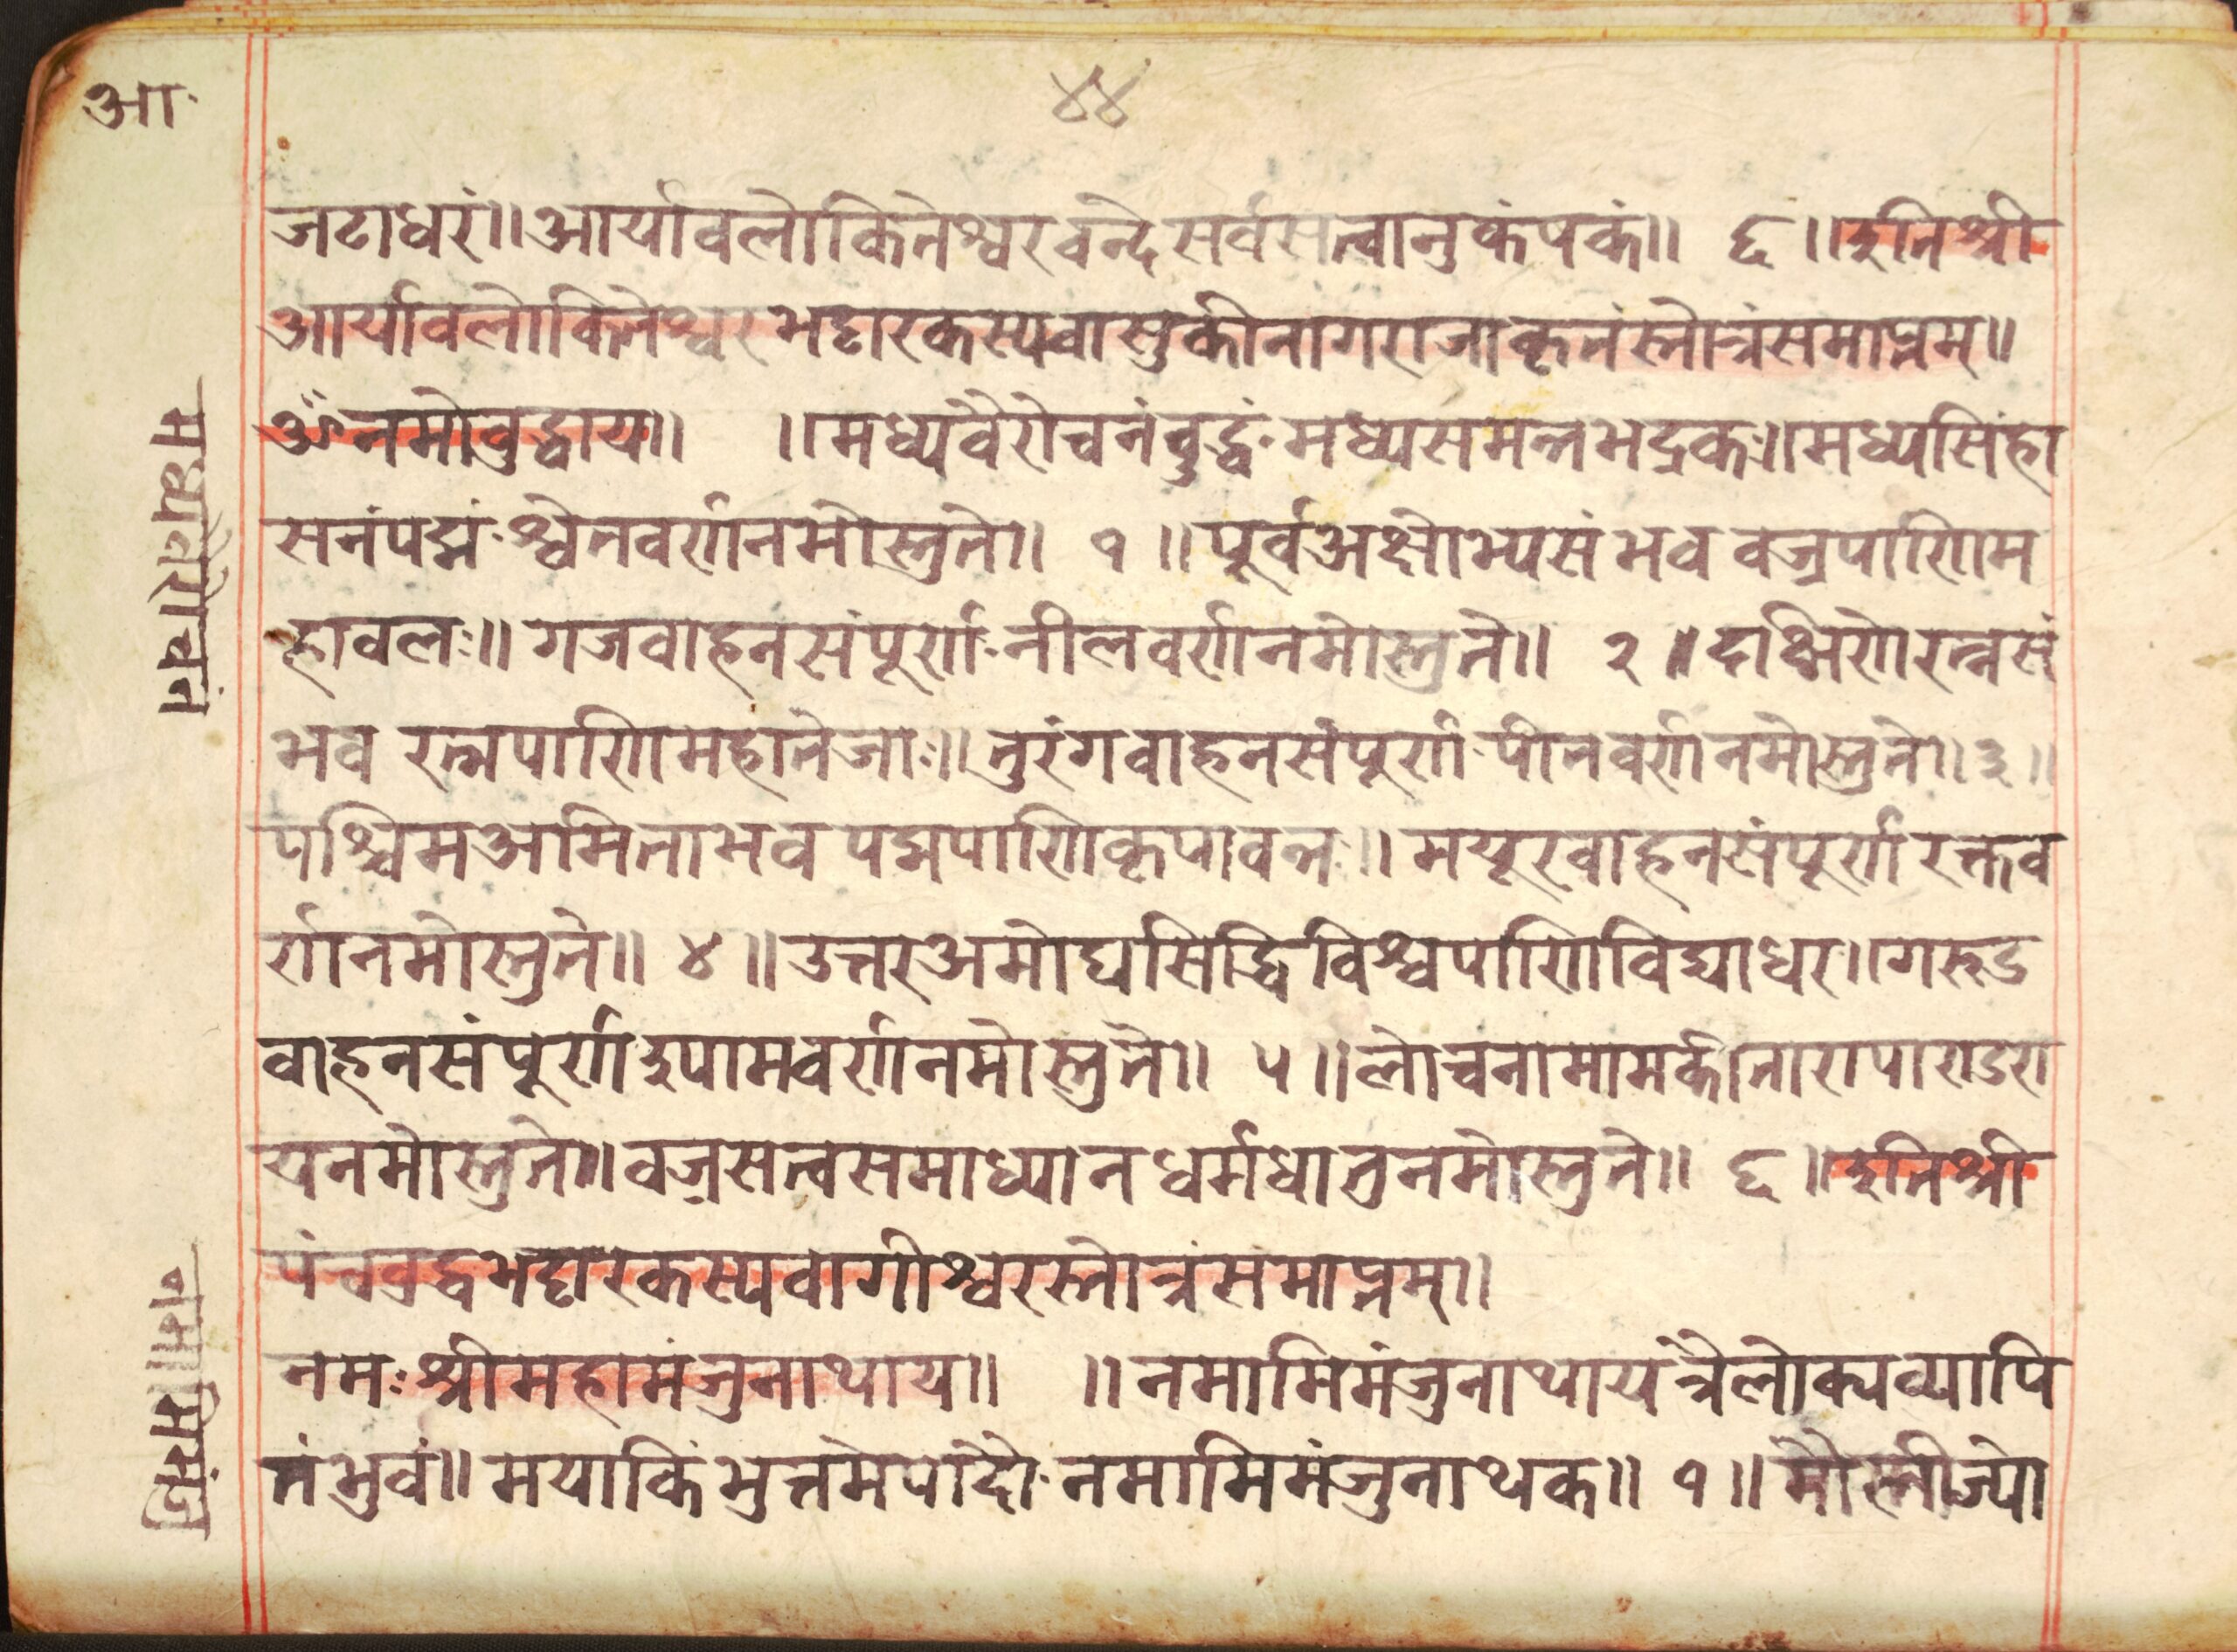 आ
४४
जटाधरं॥आर्यावलोकितेश्वरवन्देसर्वसत्वानुकंपकं॥ ६ ॥इतिश्री
आर्यावलोकितेश्वरभट्टारकस्यवासुकीनागराजाकृतंस्तोत्रंसमाप्तम्॥
ॐनमोवुद्धाय॥ ॥मध्यवैरोचनंवुद्धंमध्यसमन्तभद्रकः॥मध्यसिंहा
सनंपद्मंश्वेतवर्णनमोस्तुते॥ १ ॥पूर्वअक्षोभ्यसंभव वज्रपाणिम
हावलः॥ गजवाहनसंपूर्णनीलवर्णनमोस्तुते॥ २ ॥दक्षिणेरत्नसं
भव रत्नपाणिमहातेजाः॥तुरंगवाहनसंपूर्णपीतवर्णनमोस्तुते॥३॥
पश्चिमअमिताभव पद्मपाणिकृपावन्तः॥ मयूरवाहनसंपूर्णरक्तव
र्णनमोस्तुते॥ ४ ॥उत्तरअमोघसिद्धिविश्वपाणिविद्याधर॥गरूड
वाहनसंपूर्णइपामवर्णनमोस्तुते॥ ५ ॥लोचनामामकीतारापाण्डरा
यनमोस्तुते॥वज्रसत्वसमाध्यानधर्मधातुनमोस्तुते॥ ६ ॥इतिश्री
पंचवुद्धभट्टारकस्यवागीश्वरस्तोत्रंसमाप्तम्॥
नमःश्रीमहामंजुनाथाय॥ ॥नमामिमंजुनाथायंत्रैलोक्यव्यापि
तंभुवं॥मयाकिंभुत्तमेपादौनमामिमंजुनाथक॥ १ ॥
मध्येवैरोचनं
नमामिमंजु